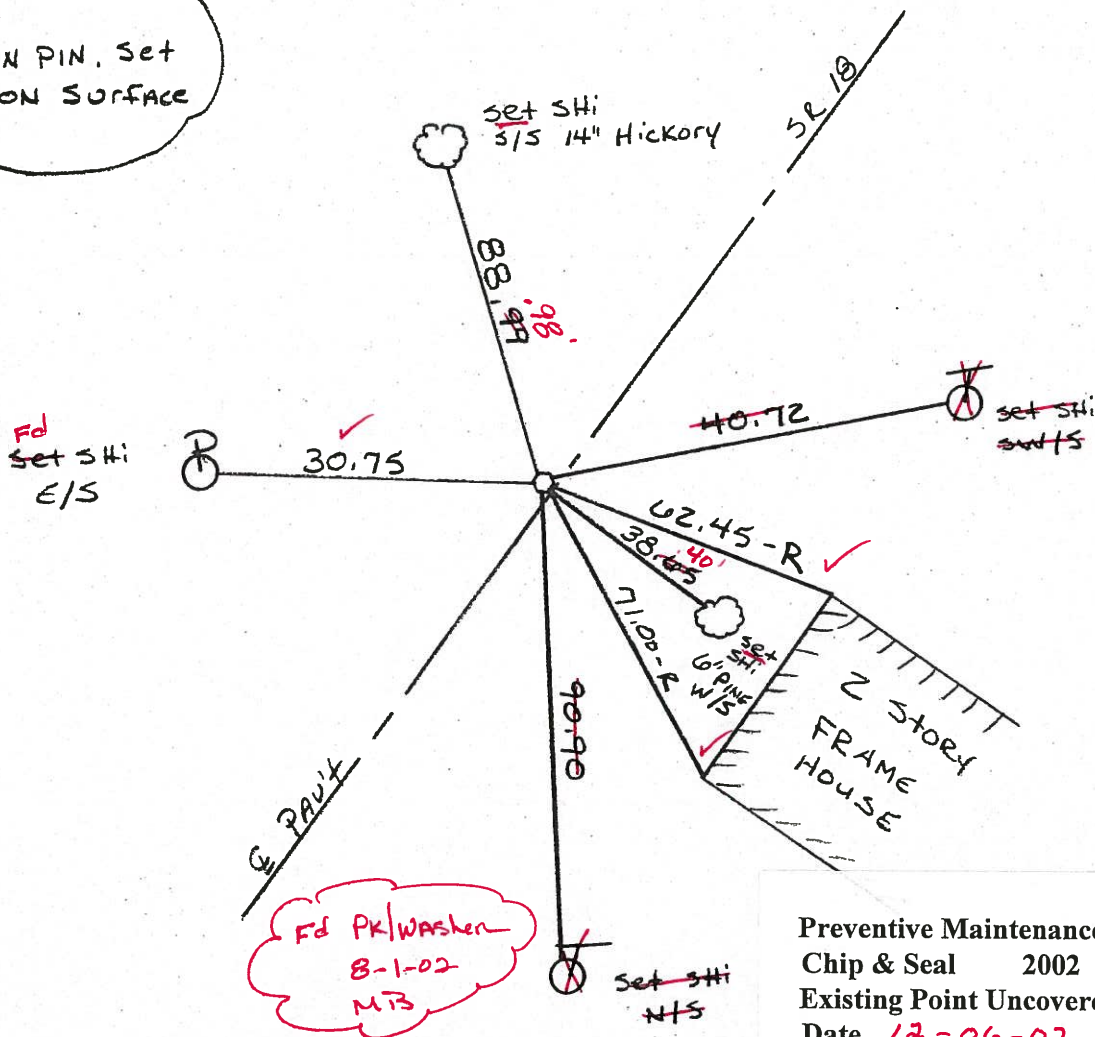 N PIN. Set
ON SurfACE
set SHi
S/S 14" Hickory
SR 18
88.99
.98'
Fd
set SHi
E/S
30.75
40.72
set SHi
SW/S
62.45-R
38.65
40'
71.00-R
set
SHi
6" PINE
W/S
2 STORY
FRAME
HOUSE
90.90
℄ PAV't
Fd PK/WASHer
8-1-02
MB
set SHi
N/S
Preventive Maintenance
Chip & Seal 2002
Existing Point Uncovere
Date